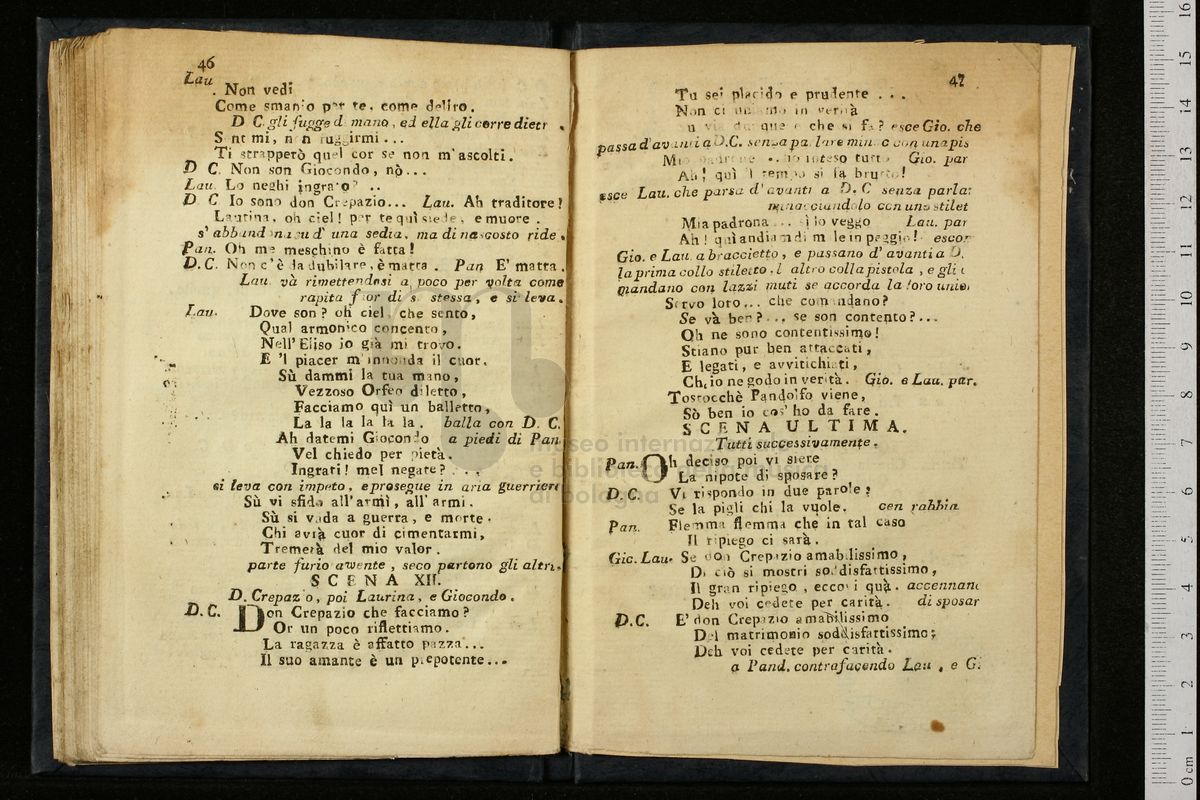 46
Lau. Non vedi
Come smanio per te, come deliro.
D C. gli fugge d mano, ed ella gli corre dietr .
S nt mi, n n fuggirmi ...
Ti strapperò quel cor se non m'ascolti.
D C. Non son Giocondo, nò...
Lau. Lo neghi ingrato? ..
D. C Io sono don Crepazio... Lau. Ah traditore!
Laurina, oh ciel! per te qui siede, e muore .
s' abbandona su d' una sedia, ma di nascosto ride.
Pan. Oh me meschino è fatta!
D.C. Non c'è da dubitare, è matta . Pan E' matta.
Lau và rimettendosi a poco per volta come
rapita fuor di se stessa, e si leva.
Lau. Dove son? oh ciel, che sento,
Qual armonico concento,
Nell' Eliso io già mi trovo.
E 'l piacer m'innonda il cuor.
Sù dammi la tua mano,
Vezzoso Orfeo diletto,
Facciamo quì un balletto,
La la la la la la. balla con D. C.
Ah datemi Giocondo a piedi di Pan
Vel chiedo per pietà.
Ingrati! mel negate? . . .
si leva con impeto, e prosegue in aria guerriera
Sù vi sfido all'armi, all' armi.
Sù si vada a guerra, e morte.
Chi avrà cuor di cimentarmi,
Tremerà del mio valor.
parte furio amente, seco partono gli altri.
SCENA XII.
D. Crepazio, poi Laurina, e Giocondo.
D.C. Don Crepazio che facciamo?
Or un poco riflettiamo.
La ragazza è affatto pazza...
Il suo amante è un prepotente...
47
Tu sei placido e prudente . . .
Non ci in verità
che si fa? esce Gio. che
passa d'avanti a D.C. senza parlare con una pis
Mia padrone .. ho inteso tutto Gio. par
Ah! quì 'l tempo si fa brutto!
esce Lau. che parsa d'avanti a D. C senza parlar
minacciandolo con uno stilet
Mia padrona ... sì lo veggo Lau. par
Ah! quì andiam di male in peggio! escon
Gio. e Lau. a braccietto, e passano d'avanti a D.
la prima collo stiletto, l altro colla pistola, e gli
mandano con lazzi muti se accorda la loro union
Servo loro... che comandano?
Se và ben?... se son contento?...
Oh ne sono contentissimo!
Stiano pur ben attaccati,
E legati, e avvitichiati,
Ch'io ne godo in verità. Gio. e Lau. par.
Tostocchè Pandolfo viene,
Sò ben io cos' ho da fare.
SCENA ULTIMA.
Tutti successivamente.
Pan. Oh deciso poi vi siete
La nipote di sposare?
D.C. Vi rispondo in due parole:
Se la pigli chi la vuole. con rabbia
Pan. Flemma flemma che in tal caso
Il ripiego ci sarà.
Gio. Lau. Se don Crepazio amabilissimo,
Di ciò si mostri soddisfattissimo,
Il gran ripiego, eccovi quà. accennano
Deh voi cedete per carità. di sposar
D.C. E' don Crepazio amabilissimo
Del matrimonio soddisfattissimo;
Deh voi cedete per carità.
a Pand. contrafacendo Lau, e G.
museo internaz
e biblioteca della musica
di bologna
0 cm 1 2 3 4 5 6 7 8 9 10 11 12 13 14 15 16